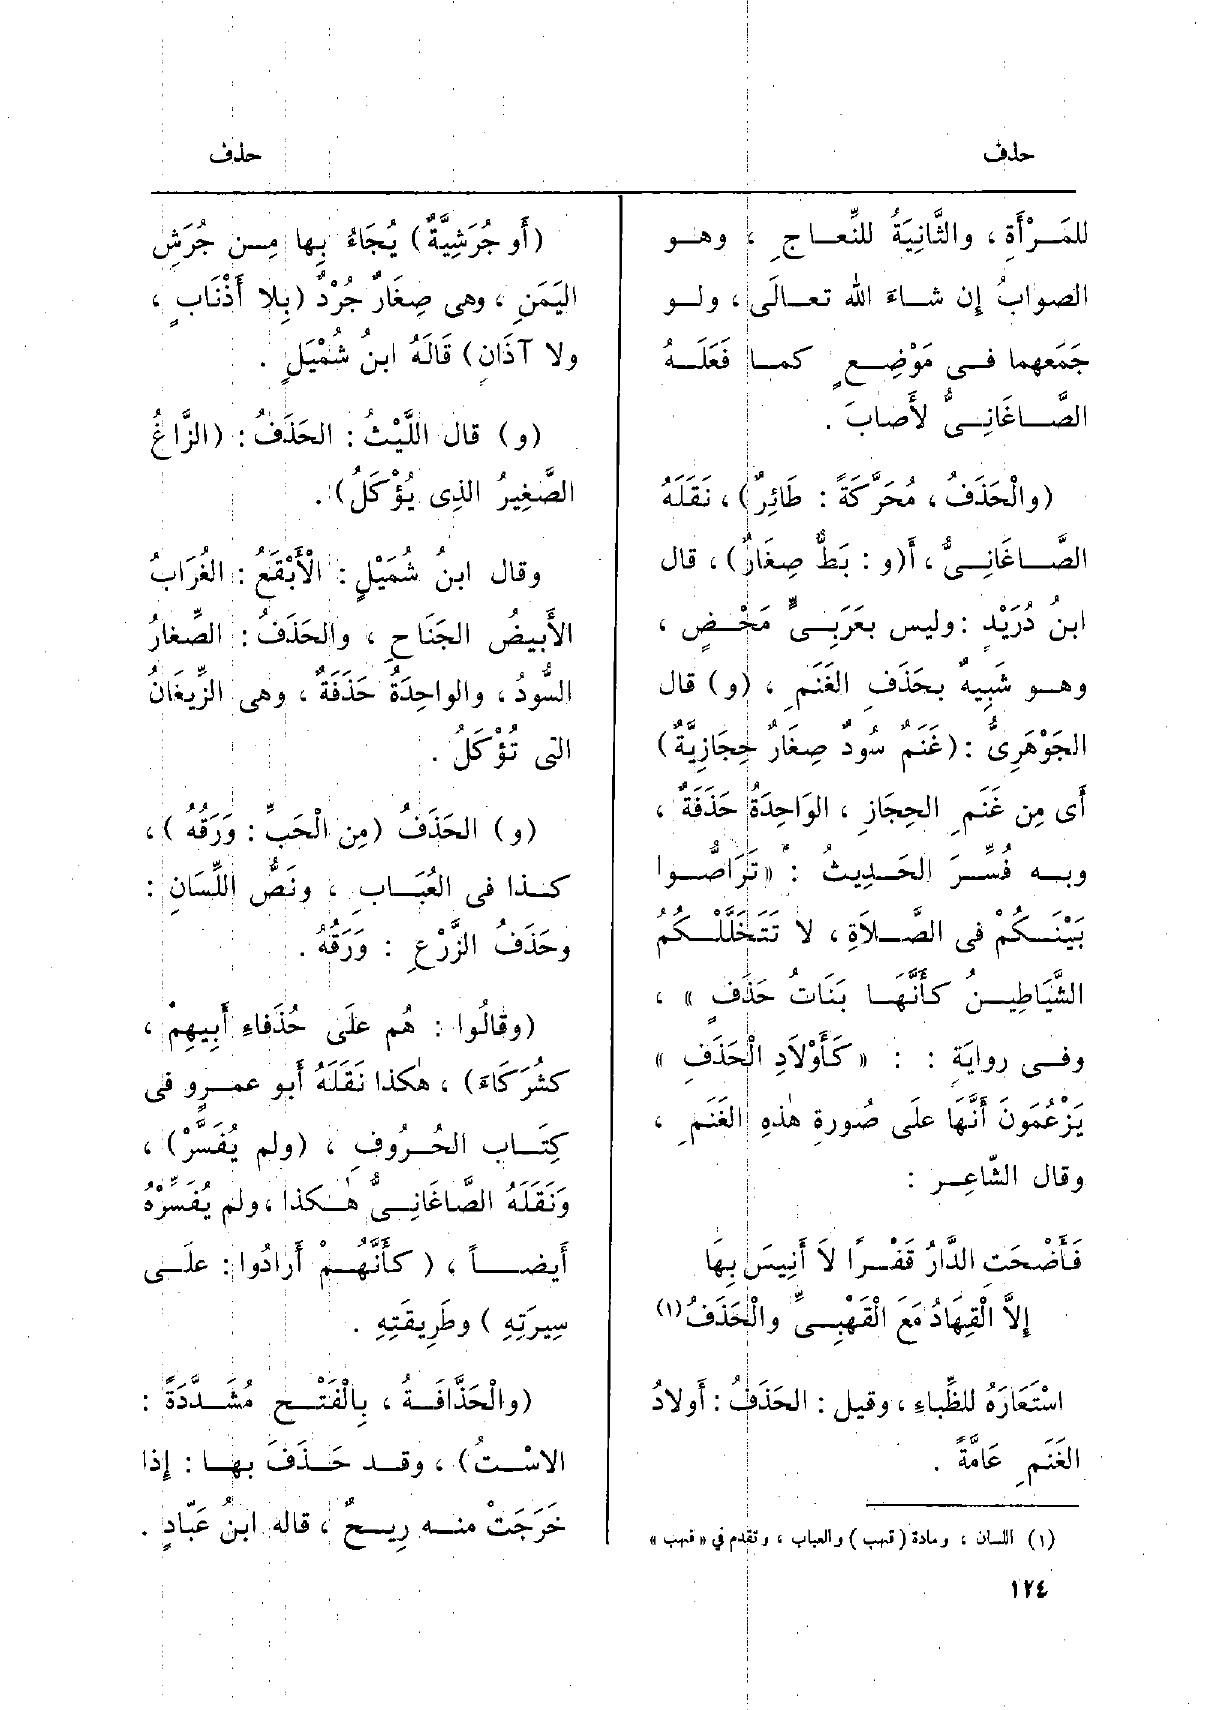 حذف
حذف
للمَرْأَةِ ، والثَّانِيَةُ للنِّعاجِ ، وهو
الصوابُ إِن شاءَ الله تعالَى ، ولو
جَمَعهما فى مَوْضِعٍ كما فَعَلَهُ
الصَّاغَانِىُّ لأَصابَ .
(والْحَذَفُ ، مُحَرَّكَةً : طَائِرٌ) ، نَقَلَهُ
الصَّاغَانِىُّ ، أَ(و : بَطٌّ صِغَارٌ) ، قال
ابنُ دُرَيْدٍ : وليس بعَرَبِىٍّ مَحْضٍ ،
وهو شَبِيهٌ بحَذَفِ الغَنَمِ ، (و) قال
الجَوْهَرِىُّ : (غَنَمٌ سُودٌ صِغَارٌ حِجَازِيَّةٌ)
أَى مِن غَنَمِ الحِجَازِ ، الوَاحِدَةُ حَذَفَةٌ ،
وبه فُسِّرَ الحَدِيثُ : «تَرَاصُّوا
بَيْنَكُمْ فى الصَّلاَةِ ، لا تَتَخَلَّلُكُمُ
الشَّيَاطِينُ كأَنَّهَا بَنَاتُ حَذَفٍ » ،
وفى روايَةِ : : « كَأَوْلاَدِ الْحَذَفِ »
يَزْعُمُونَ أَنَّهَا علَى صُورةِ هٰذِهِ الغَنَمِ ،
وقال الشّاعِر :
فَأَضْحَتِ الدَّارُ قَفْرًا لاَ أَنِيسَ بِهَا
إِلاَّ الْقِهَادُ مَعَ الْقَهْبِىِّ والْحَذَفُ(١)
اسْتَعَارَهُ للظِّباءِ ، وقيل : الحَذَفُ : أَولادُ
الغَنَمِ عَامَّةً .
(١) اللسان ، ومادة (قهب) والعباب ، وتقدم في «قهب»
(أَو جُرَشِيَّةٌ) يُجَاءُ بِها مِن جُرَشِ
اليَمَنِ ، وهى صِغَارٌ جُرْدٌ (بِلا أَذْنَابٍ ،
ولا آذَانٍ) قَالَهُ ابنُ شُمَيْلٍ .
(و) قال اللَّيْثُ : الحَذَفُ : (الزَّاغُ
الصَّغِيرُ الذِى يُؤْكَلُ) .
وقال ابنُ شُمَيْلٍ : الْأَبْقَعُ : الغُرَابُ
الأَبيضُ الجَنَاحِ ، والحَذَفُ : الصِّغارُ
السُّودُ ، والواحِدَةُ حَذَفَةٌ ، وهى الزِّيغَانُ
التى تُؤْكَلُ .
(و) الحَذَفُ (مِن الْحَبِّ : وَرَقُهُ ) ،
كذا فى العُبَابِ ، ونَصُّ اللِّسَانِ :
وحَذَفُ الزَّرْعِ : وَرَقُهُ .
(وقَالُوا : هُم علَى حُذَفاءِ أَبِيهِمْ ،
كشُرَكَاءَ) ، هٰكذا نَقَلَهُ أَبو عمرٍو فى
كِتَابِ الحُروفِ ، (ولم يُفَسَّرْ) ،
وَنَقَلَهُ الصَّاغَانِىُّ هٰكذا ، ولم يُفَسِّرْهُ
أَيضاً ، ( كأَنَّهُمْ أَرادُوا : علَى
سِيرَتِهِ ) وطَرِيقَتِهِ .
(والْحَذَّافَةُ ، بالْفَتْحِ مُشَدَّدَةً :
الاسْتُ) ، وقد حَذَفَ بها : إِذا
خَرَجَتْ منه رِيحٌ ، قاله ابنُ عَبَّادٍ .
١٢٤